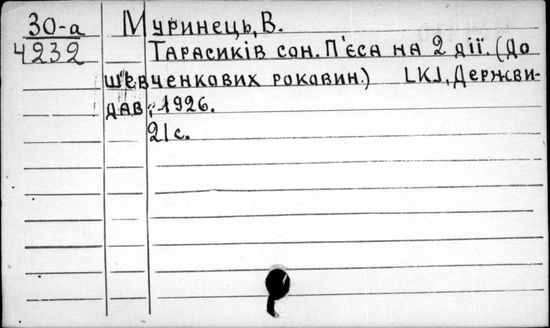 30-а Муринець, В.
4232 Тарасиків сон. П'єса на 2 дії. (До
шевченкових роковин.) [К], Держви-
дав, 1926.
21с.